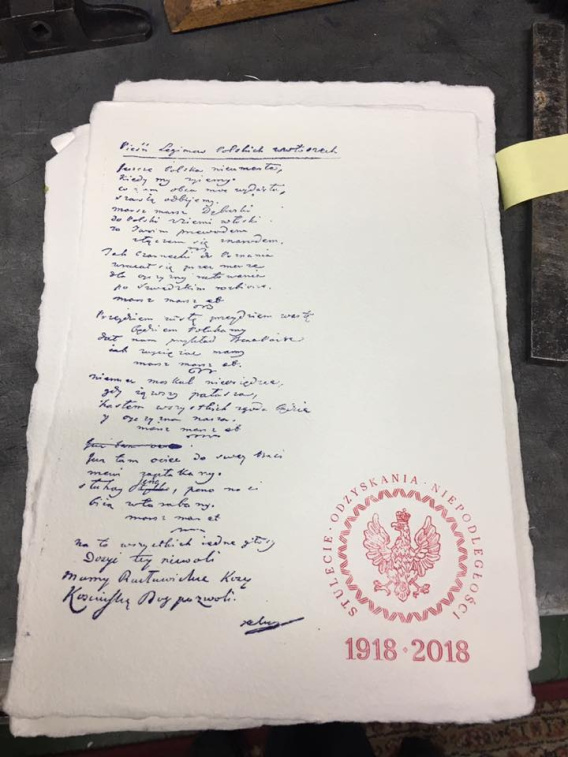 Pieśń Legionow Polskich we Włoszech
Jeszcze Polska nie umarła,
kiedy my żyiemy.
co nam obca moc wydarła,
szablą odbijemy.
marsz marsz Dąbrwski
do Polski z ziemi włoski
za Twoim przewodem
złączem się z narodem.
Jak Czarnecki do Poznania
wracał się przez morze
dla oyczyzny ratowania
po Szwedzkim rozbiorze.
marsz marsz etc
Przejdziem wisłę przejdziem wartę
Będziem Polakamy
dał nam przykład Bonaparte
iak zwyciężać mamy
marsz marsz etc.
niemiec moskal nieosiędzie,
gdy iąwszy pałasza,
hasłem wszystkich zgoda będzie
y oyczyzna nasza.
marsz marsz etc
Już tam ociec do swey Basi
mowi zapłakany.
słuchay ieno, pono nasi
biią w tarabany.
marsz marsz etc
na to wszystkich iedne głosy
Dosyć tey niewoli
mamy Racławickie Kosy
Kościuszkę Bog pozwoli.
STULECIE · ODZYSKANIA · NIEPODLEGŁOŚCI
1918 · 2018